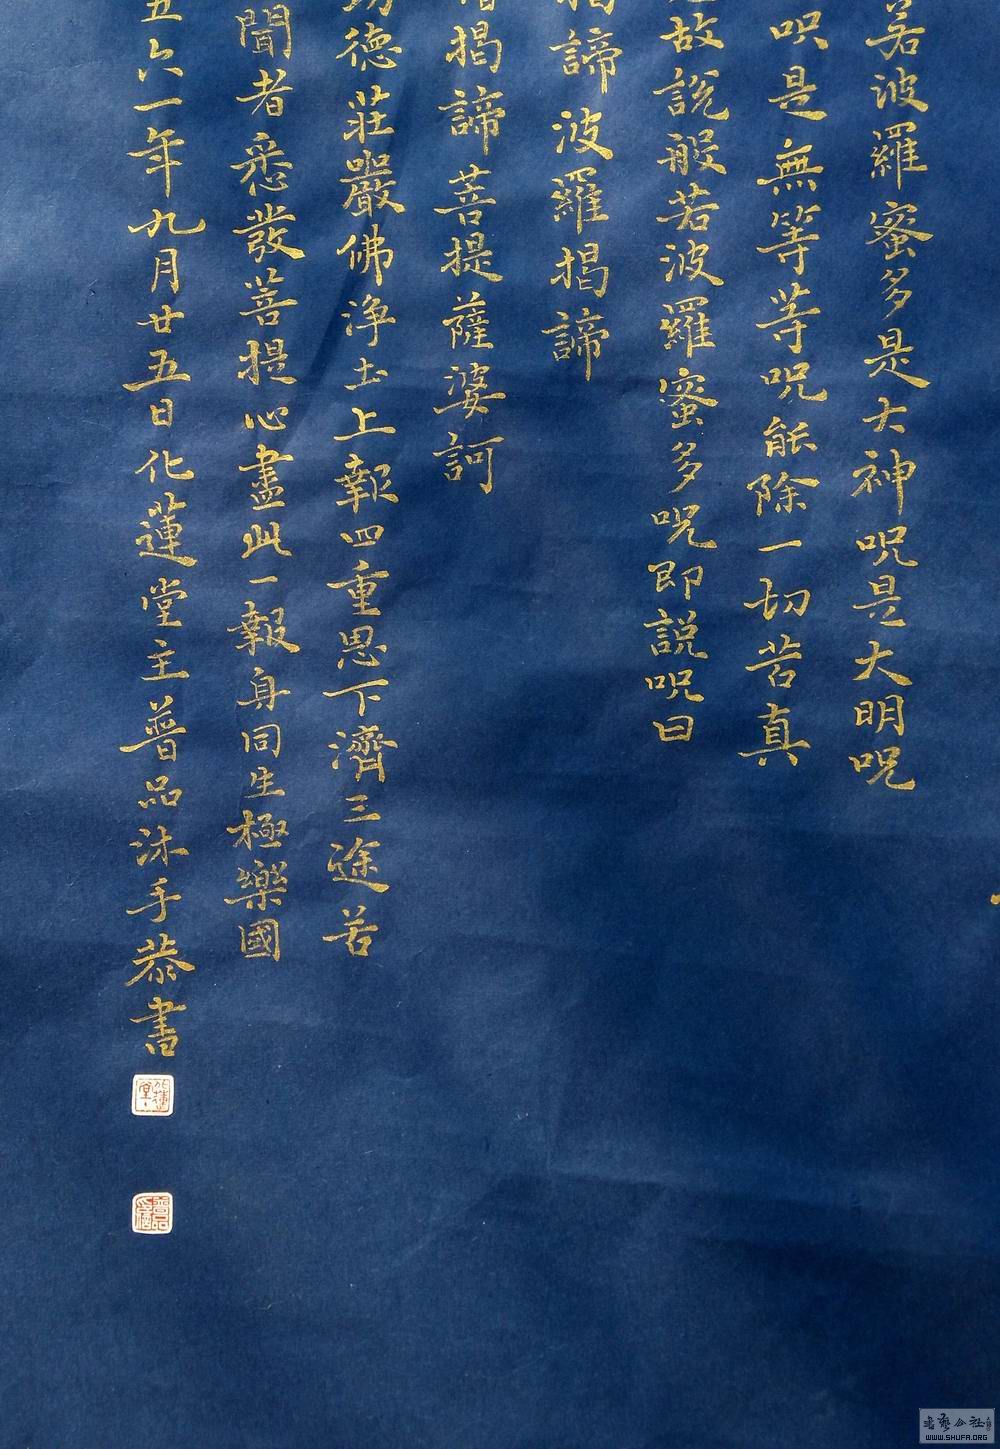 若波羅蜜多是大神呪是大明呪
呪是無等等呪能除一切苦真
故說般若波羅蜜多呪即說呪曰
揭諦波羅揭諦
揭諦菩提薩婆訶
德莊嚴佛淨土上報四重恩下濟三途苦
聞者悉發菩提心盡此一報身同生極樂國
五六一年九月廿五日化蓮堂主普品沐手恭書
化蓮堂
WWW.SHUFA.ORG